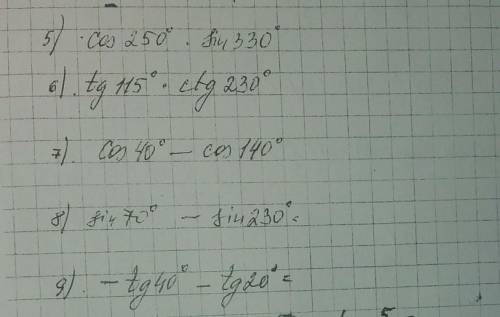 5) cos 250° · sin 330°
6) tg 115° · ctg 230°
7) cos 40° — cos 140°
8) sin 70° — sin 230° =
9) - tg 40° - tg 20° =